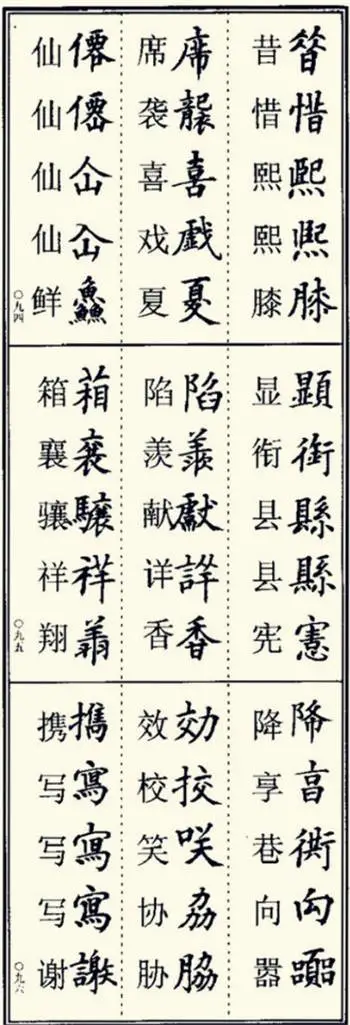 惜熙熙膝
昔惜熙熙膝
席襲喜戯夏
席袭喜戏夏
僊僊仚仚鱻
仙仙仙仙鲜
〇九四
顯衘縣縣憲
显衔县县宪
陷羨獻詳香
陷羡献详香
葙驤祥
箱襄骧祥翔
〇九五
降亯衖向嚻
降享巷向嚣
効挍咲脇
效校笑协胁
攜寫寫寫謝
携写写写谢
〇九六